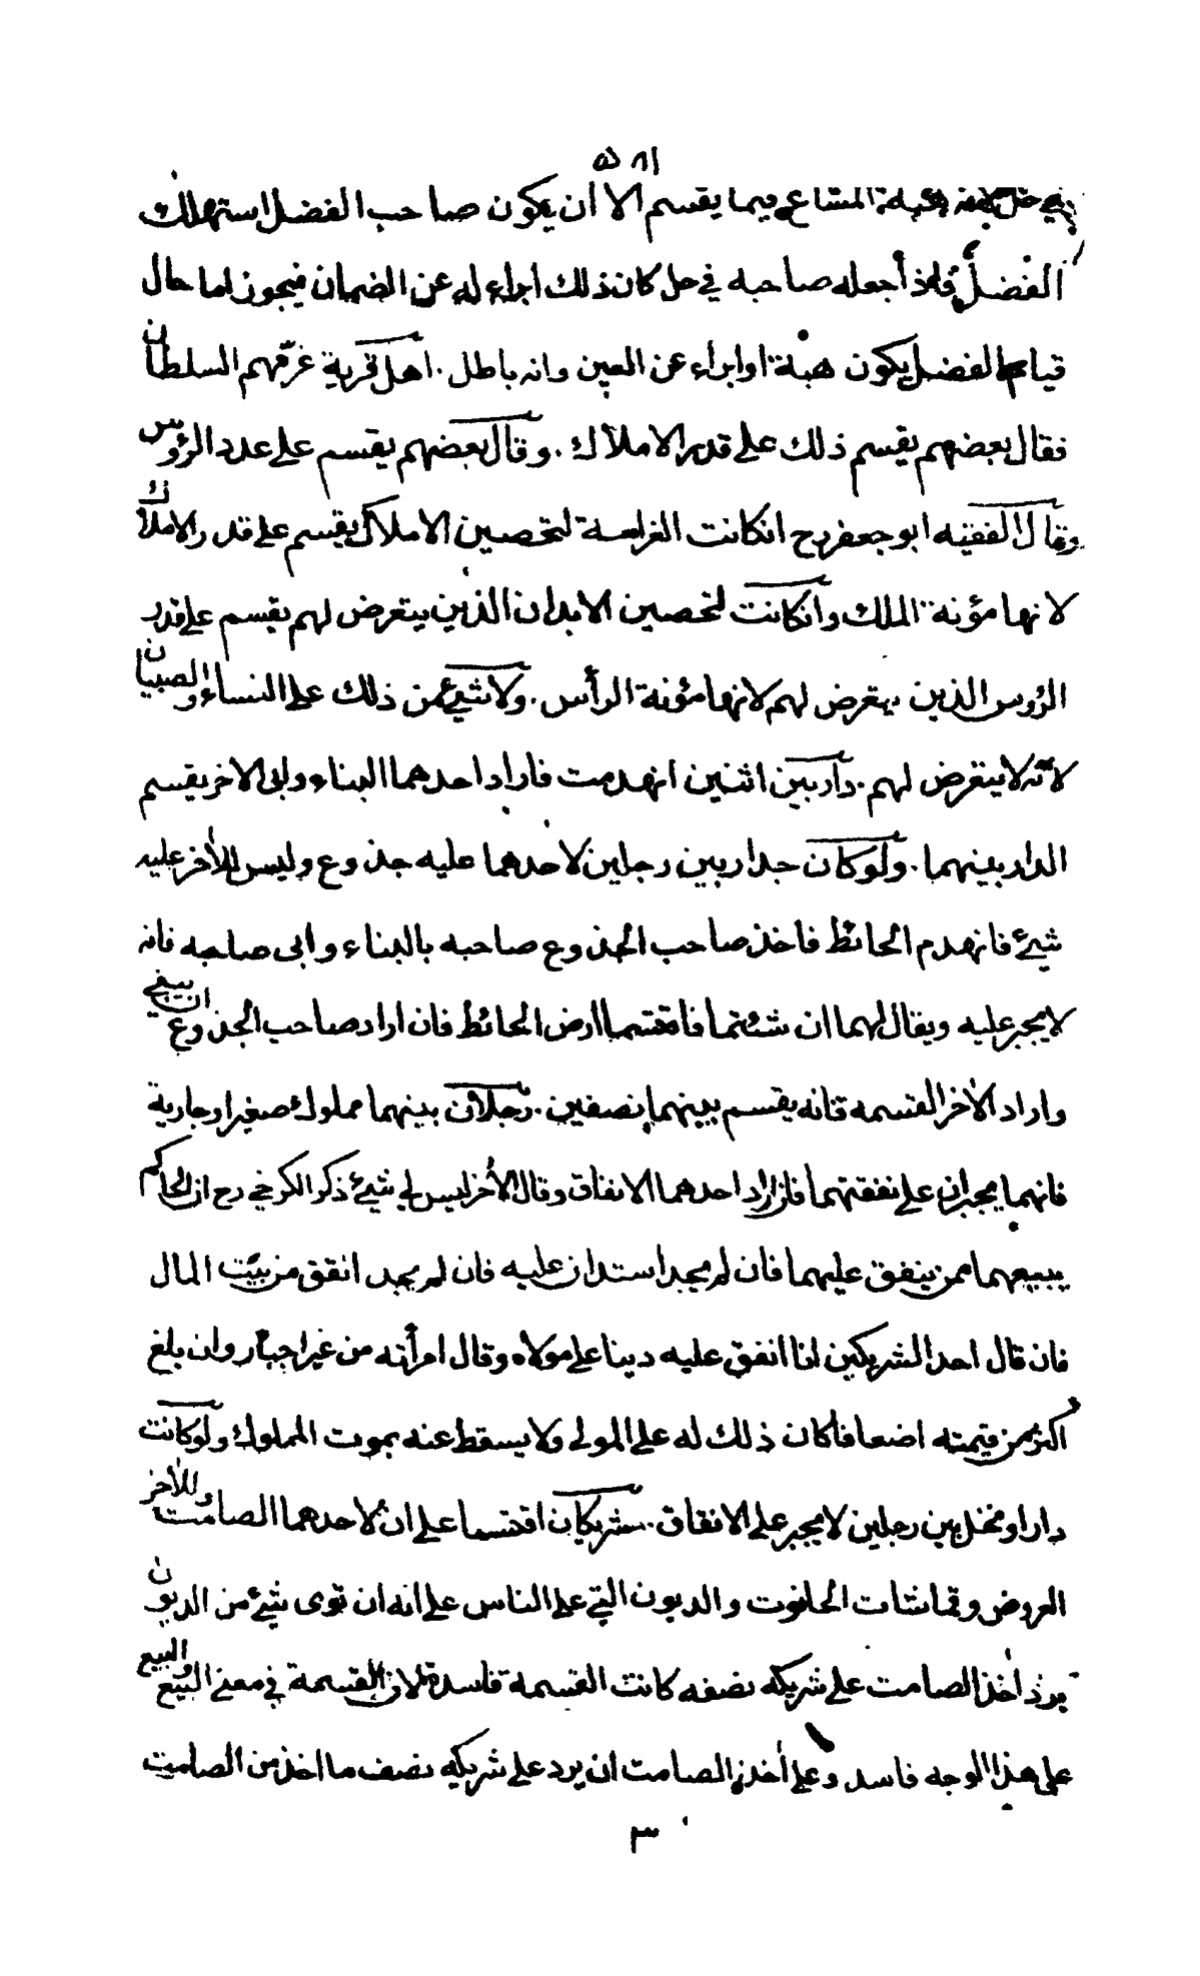 ٥٨١
في حل لانه هبة المشاع فيما يقسم الا أن يكون صاحب الفضل استهلك
الفضل فاذا جعله صاحبه في حل كان ذلك ابراء له عن الضمان فيجوز اما حال
قيام الفضل يكون هبة او ابراء عن العين وانه باطل . اهل قرية غرّمهم السلطان
فقال بعضهم يقسم ذلك على قدر الاملاك . وقال بعضهم يقسم على عدد الرؤس
وقال الفقيه ابو جعفر رح انكانت الغرامة لتحصين الاملاك يقسم على قدر الاملاك
لانها مؤنة الملك وانكانت لتحصين الابدان الذين يتعرض لهم يقسم على قدر
الرؤس الذين يتعرض لهم لانها مؤنة الرأس . ولا شئ من ذلك على النساء والصبيان
لانه لا يتعرض لهم . دار بين اثنين انهدمت فاراد احدهما البناء وابى الاخر يقسم
الدار بينهما . ولو كان جدار بين رجلين لاحدهما عليه جذوع وليس للأخر عليه
شئ فانهدم الحائط فاخذ صاحب الجذوع صاحبه بالبناء وابى صاحبه فانه
لا يجبر عليه ويقال لهما ان شئتما فاقتسما ارض الحائط فان اراد صاحب الجذوع ان يبني
واراد الأخر القسمه فانه يقسم بينهما بنصفين . رجلان بينهما مملوك صغير او جارية
فانهما يجبران على نفقتهما فان اراد احدهما الانفاق وقال الأخر ليس لي شئ ذكر الكرخي رح ان الحاكم
يبيعهما ممن ينفق عليهما فان لم يجد استدان عليه فان لم يجد انفق من بيت المال
فان قال احد الشريكين انا انفق عليه دينا على مولاه وقال امرأته من غير اجبار وان بلغ
اكثر من قيمته اضعافا كان ذلك له على المولى ولا يسقط عنه بموت المملوك ولو كانت
دارا او نخل بين رجلين لا يجبر على الانفاق . شريكان اقتسما على ان لاحدهما الصامت وللأخر
العروض وقماشات الحانوت والديون التي على الناس على انه ان توى شئ من الديون
يرد أخذ الصامت على شريكه نصفه كانت القسمة فاسدة لان القسمة في معنى البيع والبيع
على هذا الوجه فاسد وعلى أخذ الصامت ان يرد على شريكه نصف ما اخذ من الصامت
٣